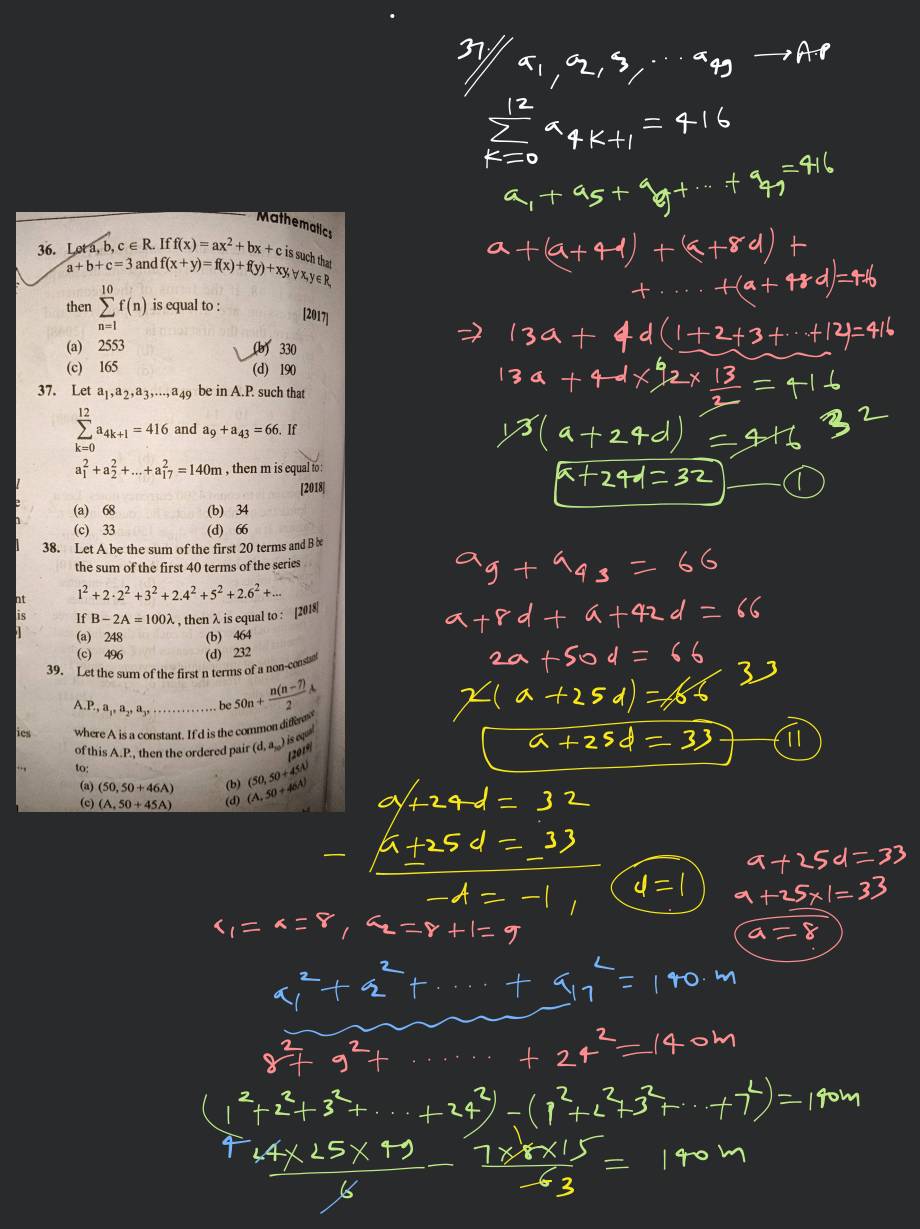 Mathematics
36. Let a, b, c ∈ R. If f(x) = ax² + bx + c is such that
a + b + c = 3 and f(x + y) = f(x) + f(y) + xy, ∀ x, y ∈ R,
then ∑_{n=1}^{10} f(n) is equal to : [2017]
(a) 2553 (b) 330
(c) 165 (d) 190
37. Let a₁, a₂, a₃, ..., a₄₉ be in A.P. such that
∑_{k=0}^{12} a_{4k+1} = 416 and a₉ + a₄₃ = 66. If
a₁² + a₂² + ... + a₁₇² = 140m, then m is equal to : [2018]
(a) 68 (b) 34
(c) 33 (d) 66
38. Let A be the sum of the first 20 terms and B be
the sum of the first 40 terms of the series
1² + 2·2² + 3² + 2.4² + 5² + 2.6² + ...
If B – 2A = 100λ, then λ is equal to : [2018]
(a) 248 (b) 464
(c) 496 (d) 232
39. Let the sum of the first n terms of a non-constant
A.P., a₁, a₂, a₃, .............. be 50n + n(n – 7)/2 A,
where A is a constant. If d is the common difference
of this A.P., then the ordered pair (d, a₅₀) is equal
to: [2019]
(a) (50, 50 + 46A) (b) (50, 50 + 45A)
(c) (A, 50 + 45A) (d) (A, 50 + 46A)
nt
is
ies
37. a₁, a₂, a₃, ... a₄₉ → A.P
∑_{K=0}^{12} a_{4K+1} = 416
a₁ + a₅ + a₉ + ... + a₄₉ = 416
a + (a + 4d) + (a + 8d) +
+ ..... + (a + 48d) = 416
⇒ 13a + 4d(1 + 2 + 3 + ... + 12) = 416
13a + 4d × 12 × 13/2 = 416
6
13(a + 24d) = 416 32
a + 24d = 32 — I
a₉ + a₄₃ = 66
a + 8d + a + 42d = 66
2a + 50d = 66
2(a + 25d) = 66 33
a + 25d = 33 — II
a + 24d = 32
– a + 25d = 33
– –
-d = -1, d = 1
a + 25d = 33
a + 25×1 = 33
a = 8
a₁ = a = 8, a₂ = 8 + 1 = 9
a₁² + a₂² + ..... + a₁₇² = 140.m
8² + 9² + ...... + 24² = 140m
(1² + 2² + 3² + ... + 24²) – (1² + 2² + 3² + ... + 7²) = 140m
4 24 × 25 × 49 / 6 – 7 × 8 × 15 / 6 3 = 140m